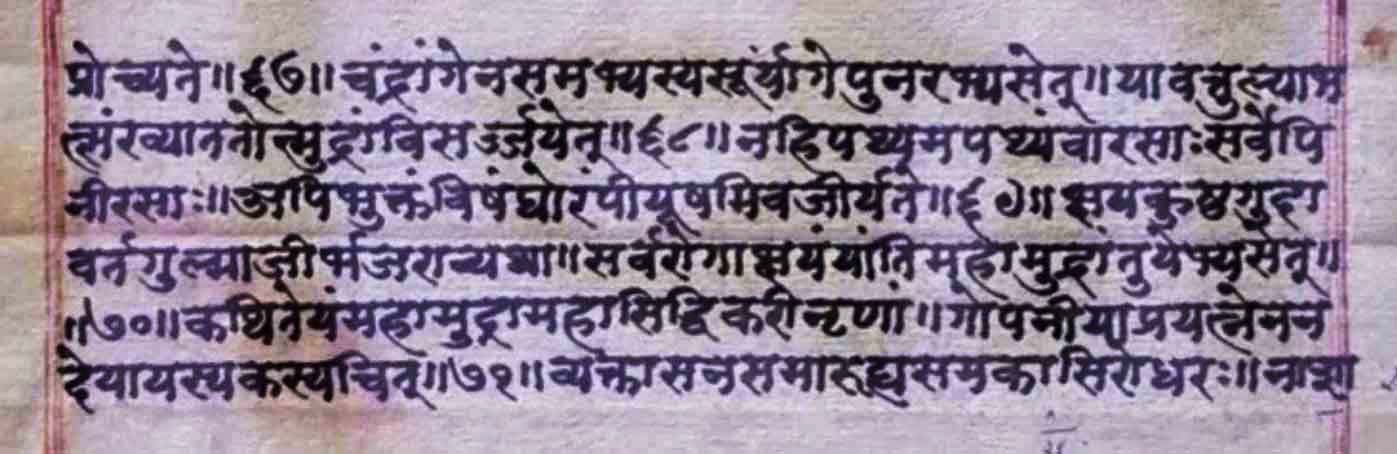 प्रोच्यते॥६७॥चंद्रांगेनसमभ्यस्यसूर्यांगेपुनरभ्यसेत्॥यावत्तुल्याभ
त्संख्याततोत्मुद्रांविसर्ज्जयेत्॥६८॥नहिपथ्यमपथ्यंवारसाःसर्वेपि
नीरसाः॥अपिभुक्तंविषंघोरंपीयूषमिवजीर्यते॥६९॥क्षयकुष्ठगुदा
वर्तगुल्माजीर्भजराव्यथा॥सर्वरोगाक्षयंयांतिमहामुद्रांतुयेभ्यसेत्॥
॥७०॥कथितेयंमहामुद्रामहासिद्धिकरीनृणां॥गोपनीयाप्रयत्नेनन
देयायस्यकस्यचित्॥७१॥व्यक्तासनसमारूह्यसमकासिरोधरः॥नाशा